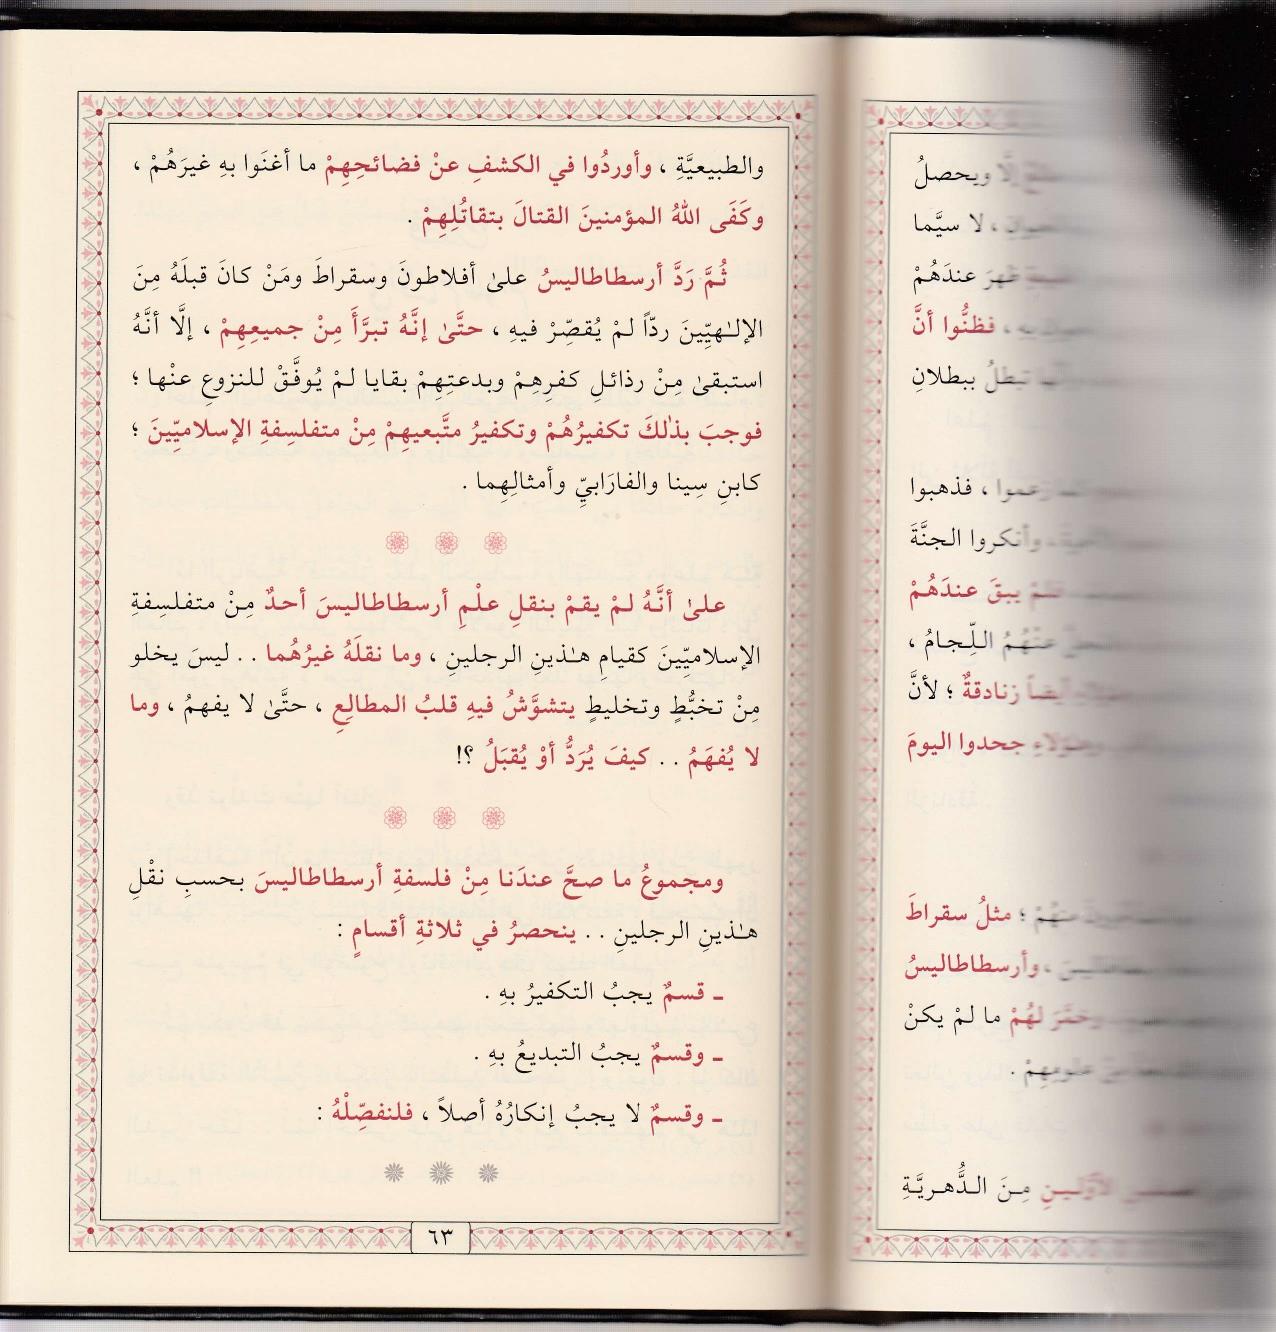 والطبيعيَّةِ ، وأوردُوا في الكشفِ عنْ فضائحِهِمْ ما أغنَوا بهِ غيرَهُمْ ،
وكَفَى اللهُ المؤمنينَ القتالَ بتقاتُلِهِمْ .
ثُمَّ رَدَّ أرسطاطاليسُ علىٰ أفلاطونَ وسقراطَ ومَنْ كانَ قبلَهُ مِنَ
الإلـٰهيِّينَ ردّاً لمْ يُقصِّرْ فيهِ ، حتَّىٰ إنَّهُ تبرَّأَ مِنْ جميعِهِمْ ، إلَّا أنَّهُ
استبقىٰ مِنْ رذائلِ كفرِهِمْ وبدعتِهِمْ بقايا لمْ يُوفَّقْ للنزوعِ عنْها ؛
فوجبَ بذٰلكَ تكفيرُهُمْ وتكفيرُ متَّبعيهِمْ مِنْ متفلسِفةِ الإسلاميِّينَ ؛
كابنِ سِينا والفارَابيِّ وأمثالِهِما .
علىٰ أنَّهُ لمْ يقمْ بنقلِ علْمِ أرسطاطاليسَ أحدٌ مِنْ متفلسِفةِ
الإسلاميِّينَ كقيامِ هـٰذينِ الرجلينِ ، وما نقلَهُ غيرُهُما . . ليسَ يخلو
مِنْ تخبُّطٍ وتخليطٍ يتشوَّشُ فيهِ قلبُ المطالِعِ ، حتَّىٰ لا يفهمُ ، وما
لا يُفهَمُ . . كيفَ يُرَدُّ أوْ يُقبَلُ ؟!
ومجموعُ ما صحَّ عندَنا مِنْ فلسفةِ أرسطاطاليسَ بحسبِ نقْلِ
هـٰذينِ الرجلينِ . . ينحصرُ في ثلاثةِ أقسامٍ :
ـ قسمٌ يجبُ التكفيرُ بهِ .
ـ وقسمٌ يجبُ التبديعُ بهِ .
ـ وقسمٌ لا يجبُ إنكارُهُ أصلاً ، فلنفصِّلْهُ :
٦٣
إلَّا ويحصلُ
، لا سيَّما
ظهرَ عندَهُمْ
، فظنُّوا أنَّ
تبطلُ ببطلانِ
، فذهبوا
، وأنكروا الجنَّةَ
يبقَ عندَهُمْ
عنْهُمُ اللِّجامُ ،
أيضاً زنادقةٌ ؛ لأنَّ
جحدوا اليومَ
منهُمْ ؛ مثلُ سقراطَ
، وأرسطاطاليسُ
لهُمْ ما لمْ يكنْ
علومِهِمْ .
الأوَّلينِ مِنَ الدُّهريَّةِ